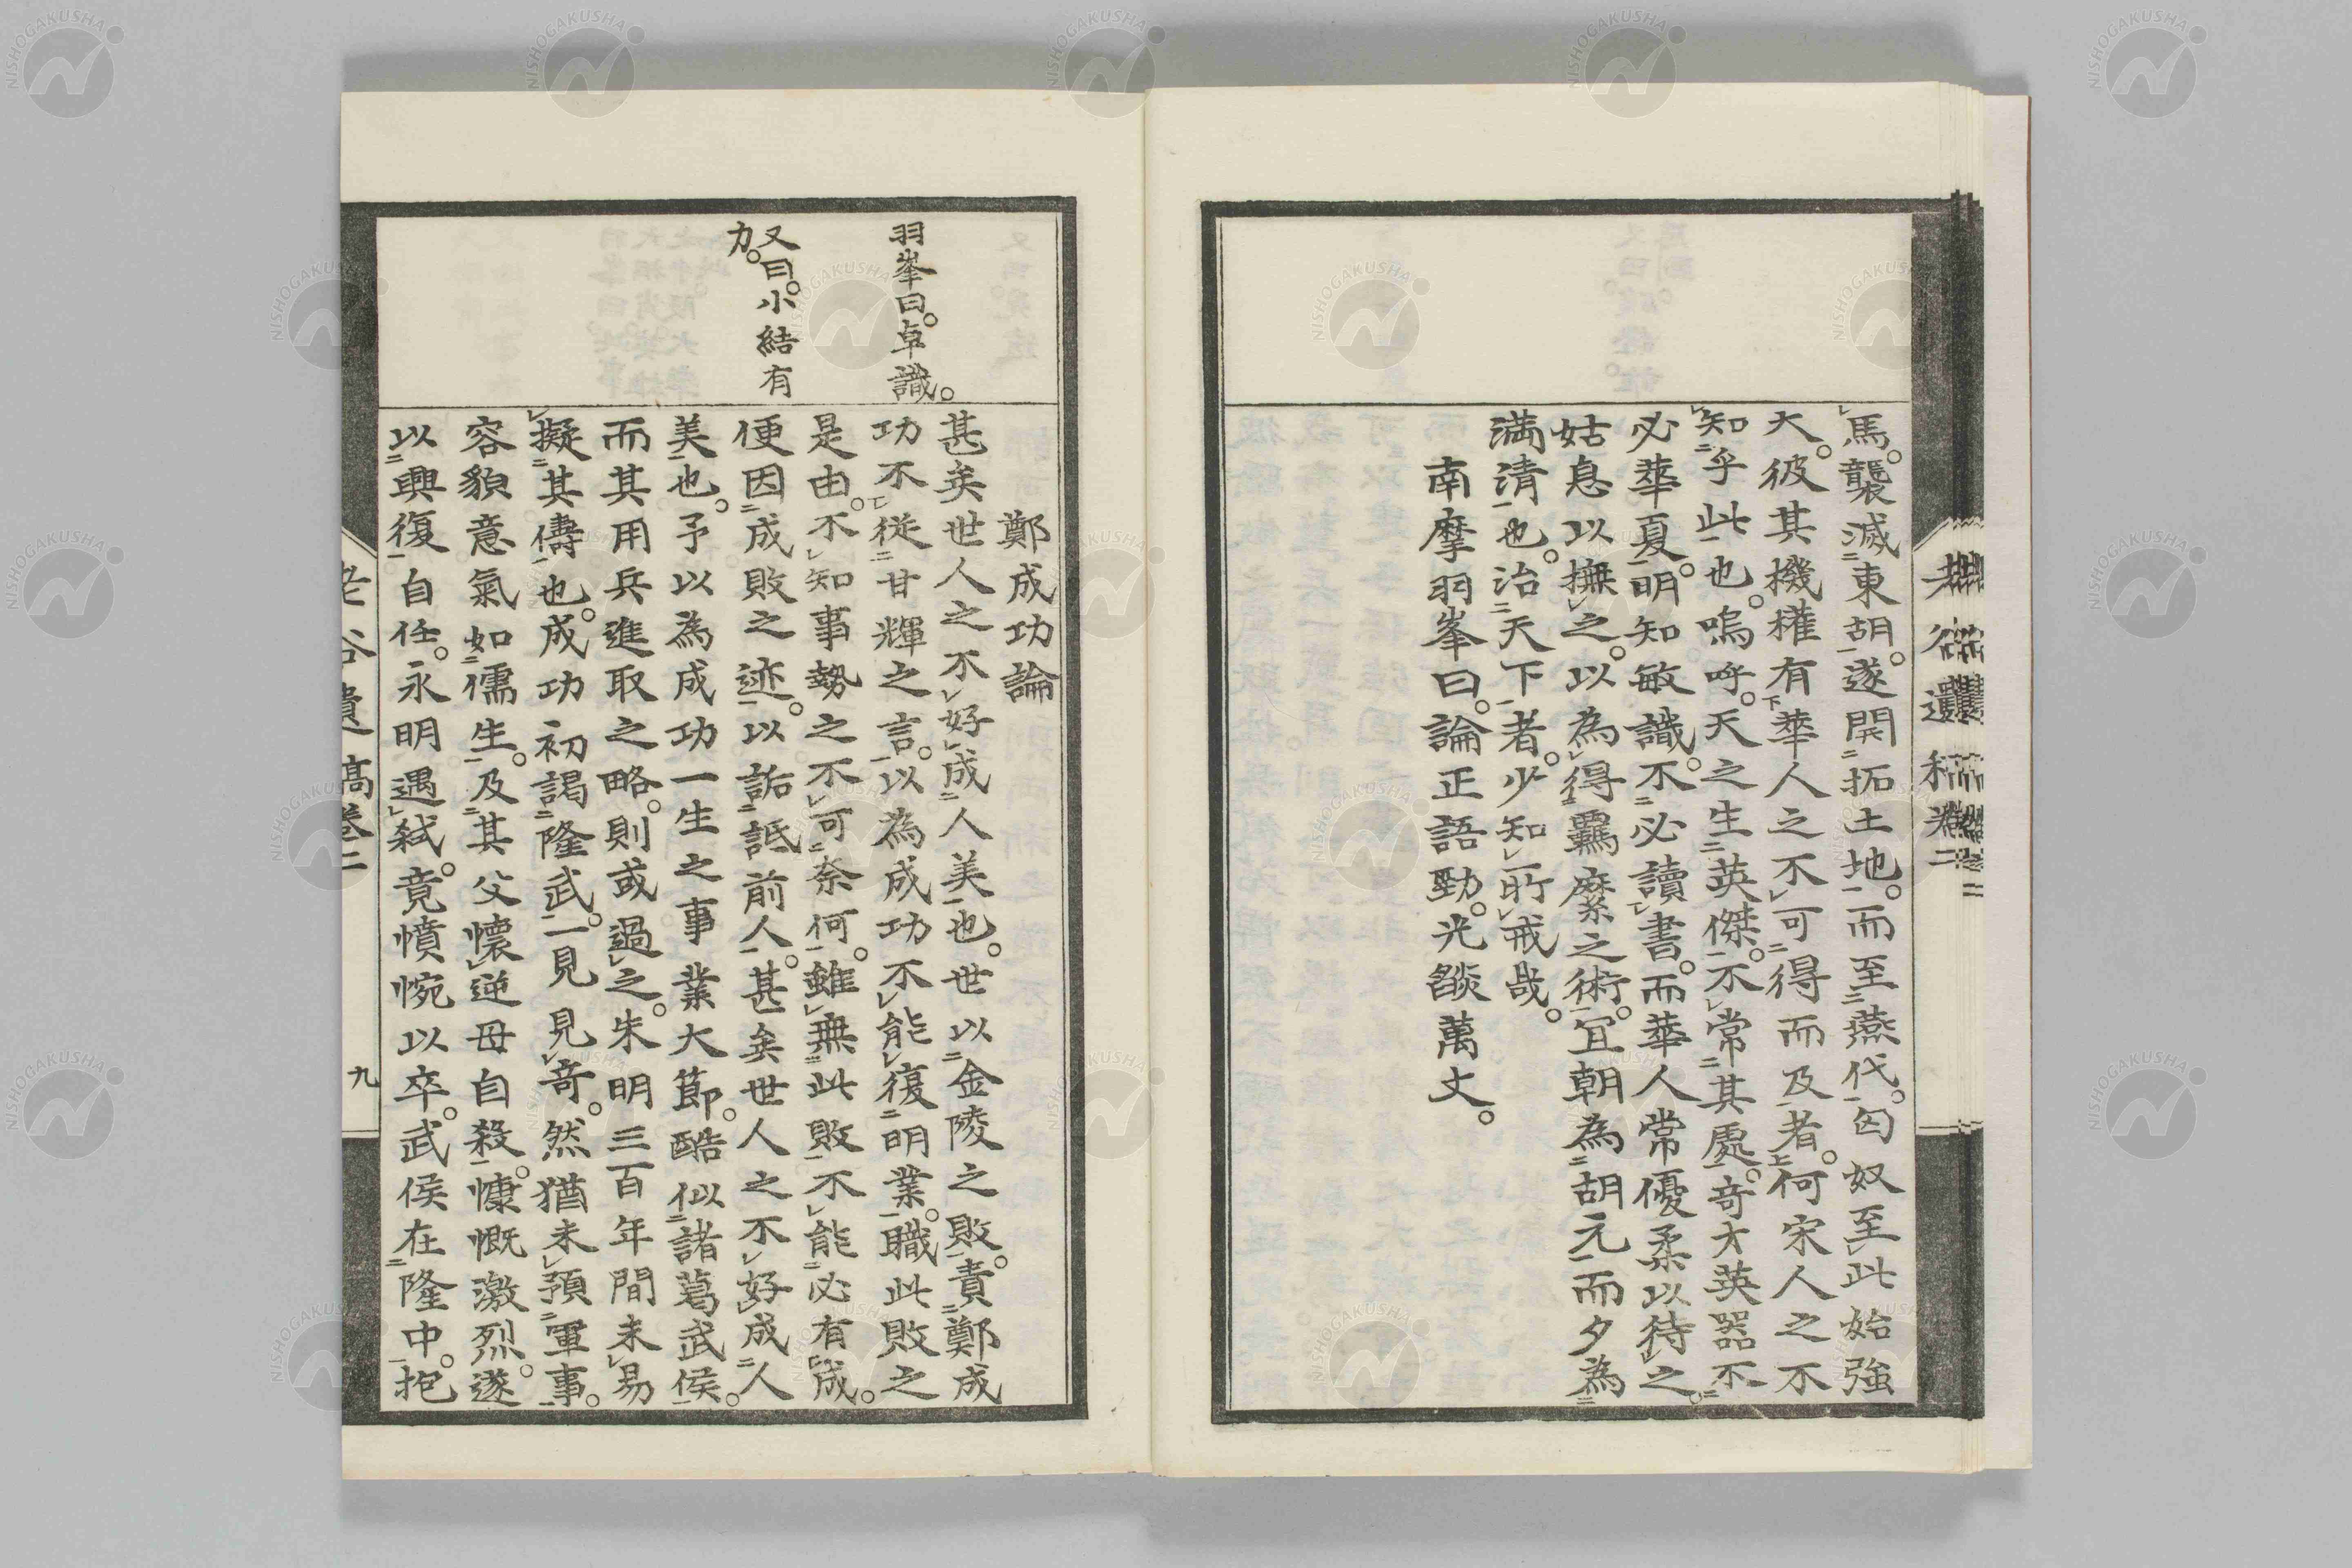 馬。襲滅東胡。遂開拓土地。而至燕代。匈奴至此始強
大。彼其機權有華人之不可得而及者。何宋人之不
知乎此也。嗚呼。天之生英傑。不常其處。奇才英器不
必華夏。明知敏識。不必讀書。而華人常優柔以待之。
姑息以撫之。以為得羈縻之術。宜朝為胡元而夕為
満清也。治天下者。少知所戒哉。
南摩羽峯曰。論正語勁。光燄萬丈。
鄭成功論
甚矣世人之不好成人美也。世以金陵之敗。責鄭成
功不從甘輝之言。以為成功不能復明業。職此敗之
是由。不知事勢之不可奈何。雖無此敗不能必有成。
便因成敗之迹。以詬詆前人。甚矣世人之不好成人
美也。予以為成功一生之事業大節。酷似諸葛武侯。
而其用兵進取之略。則或過之。朱明三百年間未易
擬其儔也。成功初謁隆武。一見見奇。然猶未預軍事。
容貌意氣如儒生。及其父懷逆母自殺。慷慨激烈。遂
以興復自任。永明遇弑。竟憤惋以卒。武侯在隆中。抱
羽峯曰。卓識。
又曰。小結有
力。
老谷遺稿卷二
九